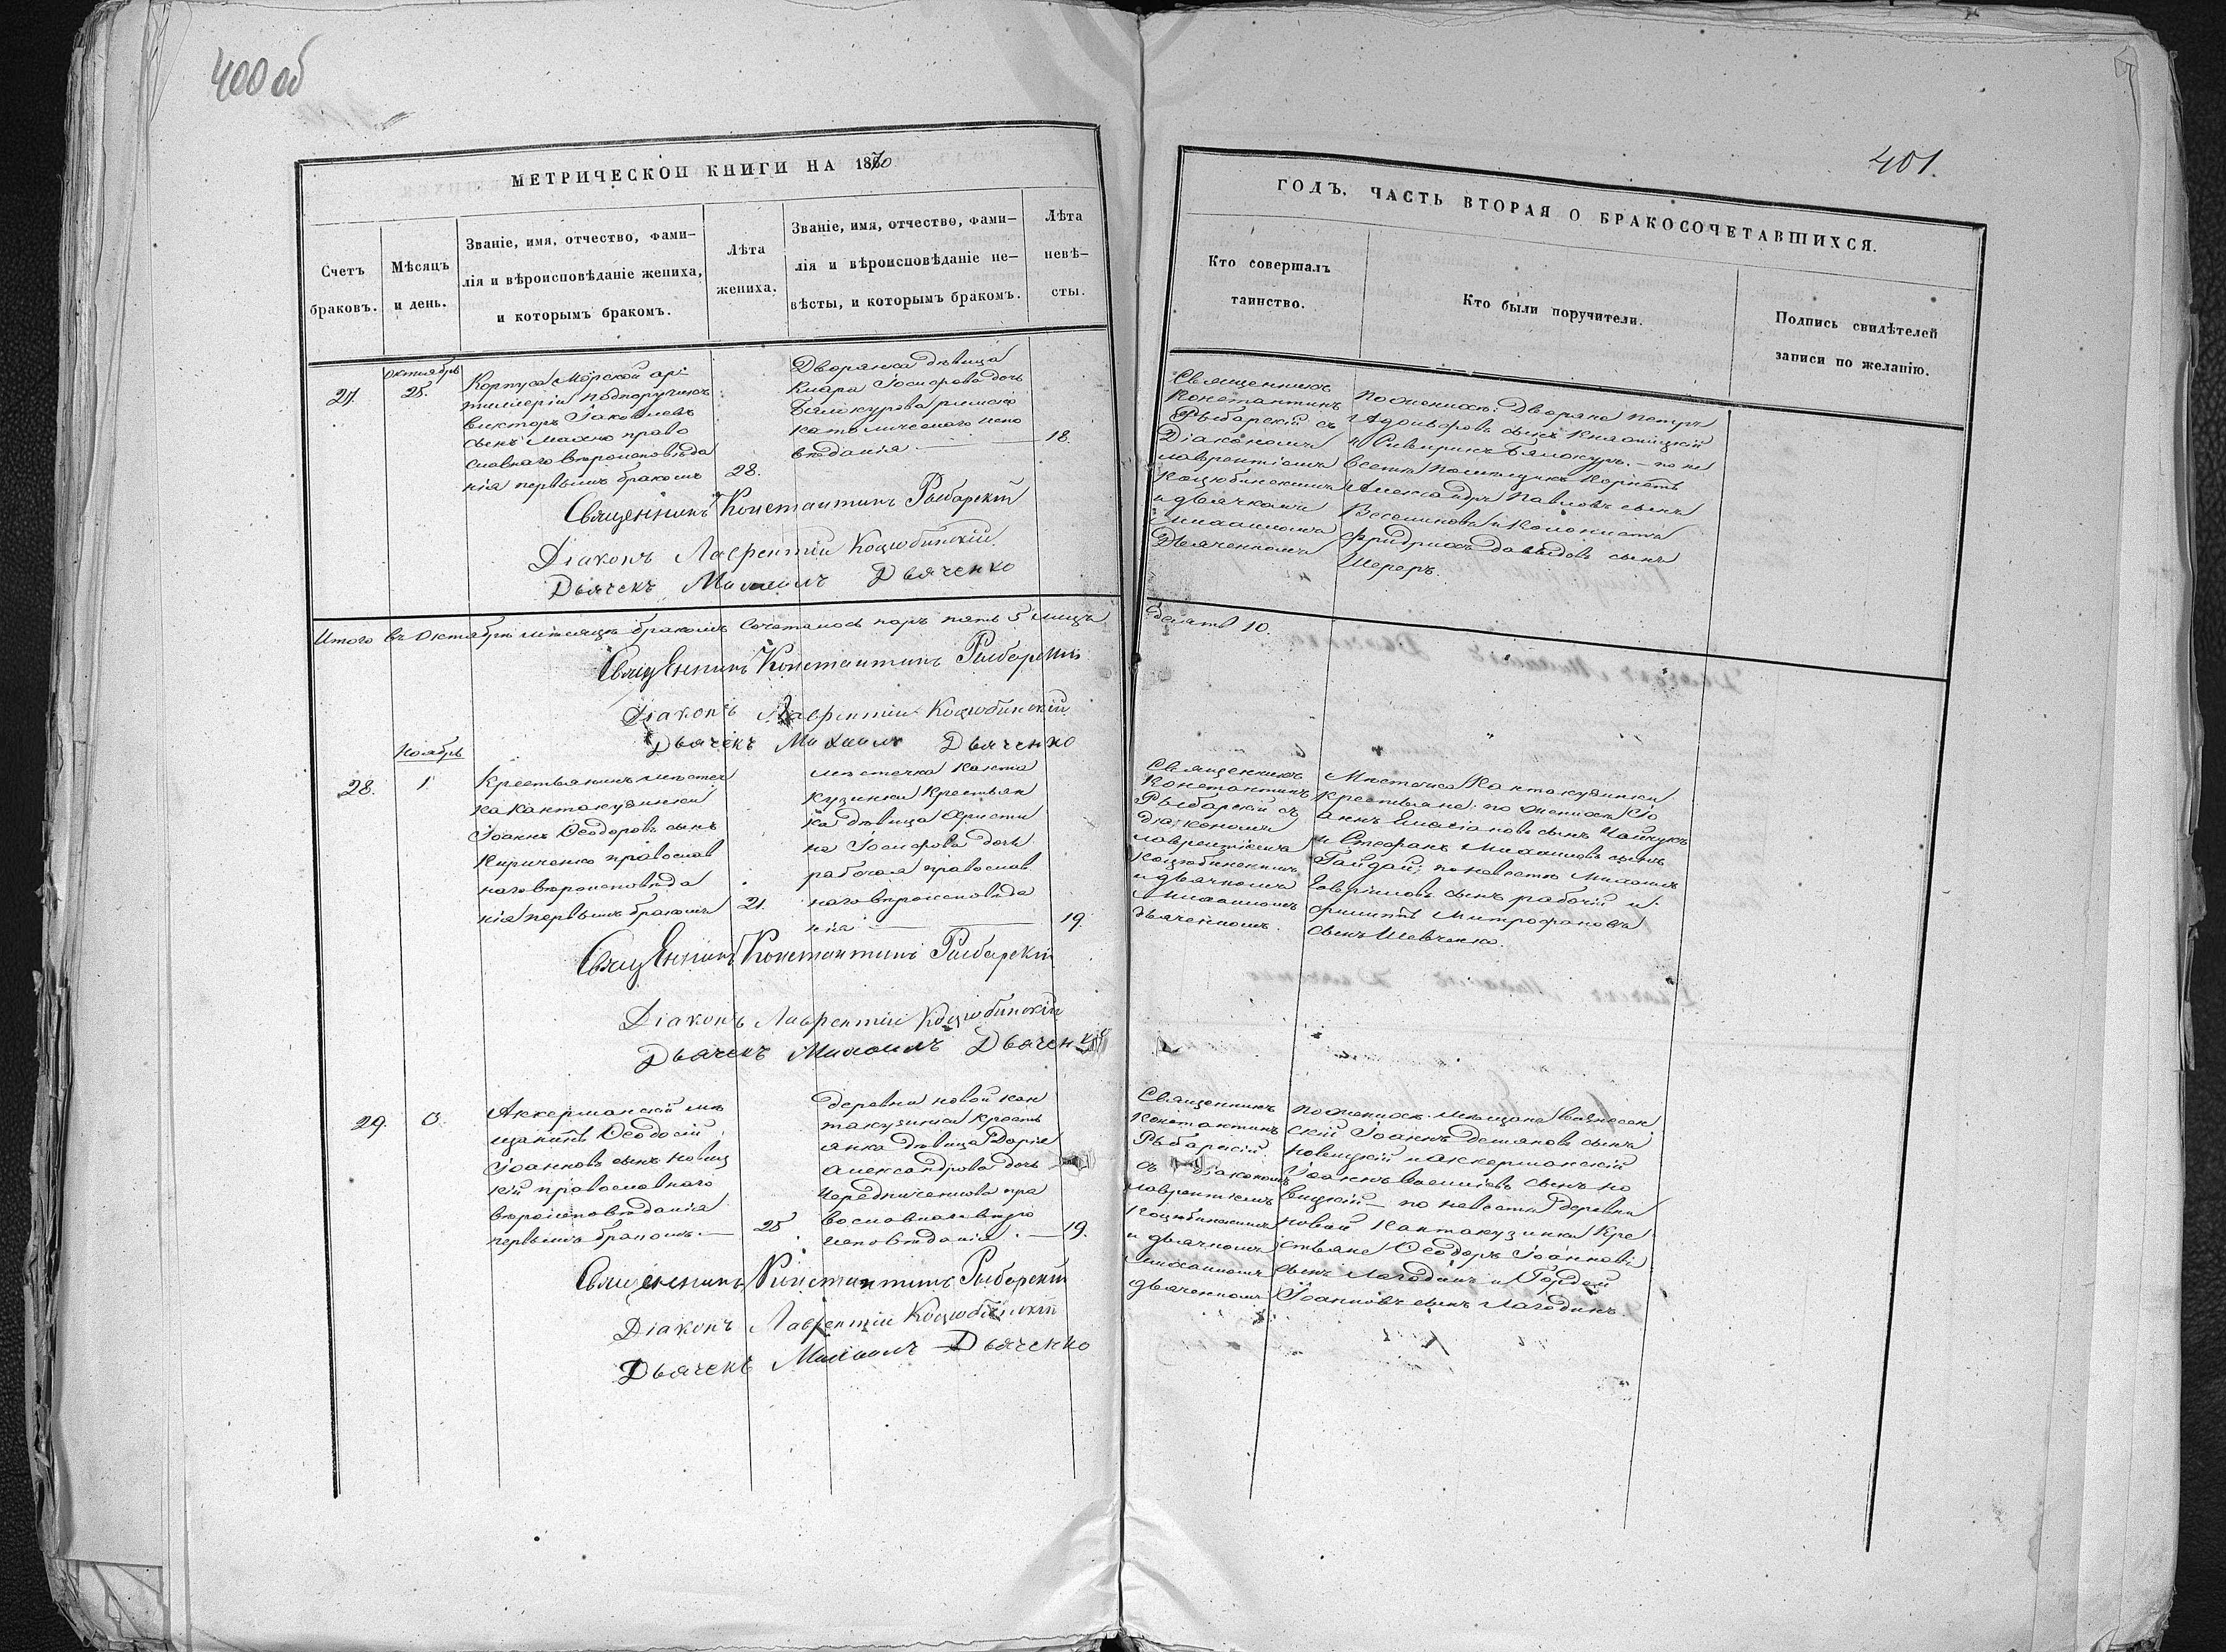 400 об
МЕТРИЧЕСКОЙ КНИГИ НА 1870
Счетъ
браковъ.
Мѣсяцъ
и день.
Званіе, имя, отчество, фами-
лія и вѣроисповѣданіе жениха,
и которымъ бракомъ.
Лѣта
жениха.
Званіе, имя, отчество, фами-
лія и вѣроисповѣданіе не-
вѣсты, и которымъ бракомъ.
Лѣта
невѣ-
сты.
27.
Октябрь
25.
Корпуса Морской ар-
тиллеріи подпоручикъ
Викторъ Іаковлевъ
сынъ Махно право
славнаго вѣроисповѣда
нія первымъ бракомъ
28.
Дворянка дѣвица
Клара Іосифова дочь
Бялокурова римско
католическаго испо
вѣданія
18.
Священникъ Константинъ Рыбарскій
Діаконъ Лаврентій Коцюбинскій
Дьячекъ Михаилъ Дьяченко
Итого въ Октябрѣ мѣсяцѣ бракомъ сочеталось паръ пять 5 лицъ
Священникъ Константинъ Рыбарскій
Діаконъ Лаврентій Коцюбинскій
Дьячекъ Михаилъ Дьяченко
28.
Ноябрь
1
Крестьянинъ мѣстеч
ка Кантакузинки
Іоаннъ Ѳеодоровъ сынъ
Кириченко православ
наго вѣроисповѣда
нія первымъ бракомъ
21.
мѣстечка Канта
кузинки крестьян
ка дѣвица Христи
на Іосифова дочь
рабочая православ
наго вѣроисповѣда
нія
19.
Священникъ Константинъ Рыбарскій
Діаконъ Лаврентій Коцюбинскій
Дьячекъ Михаилъ Дьяченко
29.
Аккерманскій мѣ
щанинъ Ѳеодосій
Іоанновъ сынъ Новиц
кій православнаго
вѣроисповѣданія
первымъ бракомъ.
25.
деревни новой Кан
такузинки кресть
янка дѣвица Дарія
Александрова дочь
пра
вославнаго вѣро
исповѣданія.
19.
Священникъ Константинъ Рыбарскій
Діаконъ Лаврентій Коцюбинскій
Дьячекъ Михаилъ Дьяченко
401.
ГОДЪ. ЧАСТЬ ВТОРАЯ О БРАКОСОЧЕТАВШИХСЯ.
Кто совершалъ
таинство.
Кто были поручители.
Подпись свидѣтелей
записи по желанію.
Священникъ
Константинъ
Рыбарскій съ
Діакономъ
Лаврентіемъ
Коцюбинскимъ
и дьячкомъ
Михаиломъ
Дьяченкомъ
По женихѣ: Дворяне Петръ
сынъ
и Бялокуръ. – по не
вѣстѣ
Александръ Павловъ сынъ
и колонистъ
Фридрихъ Давидовъ сынъ
Шереръ.
десять 10.
Священникъ
Константинъ
Рыбарскій съ
Діакономъ
Лаврентіемъ
Коцюбинскимъ
и дьячкомъ
Михаиломъ
Дьяченкомъ.
Мѣстечка Кантакузинки
крестьяне: по женихѣ Іо
аннъ сынъ
и Стефанъ Михаиловъ сынъ
Гайдай; по невѣстѣ Михаилъ
Гавріиловъ сынъ рабочій и
Филиппъ Митрофановъ
сынъ Шевченко.
Священникъ
Константинъ
Рыбарскій
съ Діакономъ
Лаврентіемъ
Коцюбинскимъ
и дьячкомъ
Михаиломъ
Дьяченкомъ
По женихѣ: мѣщане Вознесен
скій Іоаннъ Демяновъ сынъ
Новицкій и Аккерманскій
Іоаннъ Василіевъ сынъ Но
вицкій – по невѣстѣ деревни
новой Кантакузинки кре
стьяне Ѳеодоръ Іоанновъ
сынъ Лагодинъ и Гордей
Іоанновъ сынъ Лагодинъ.